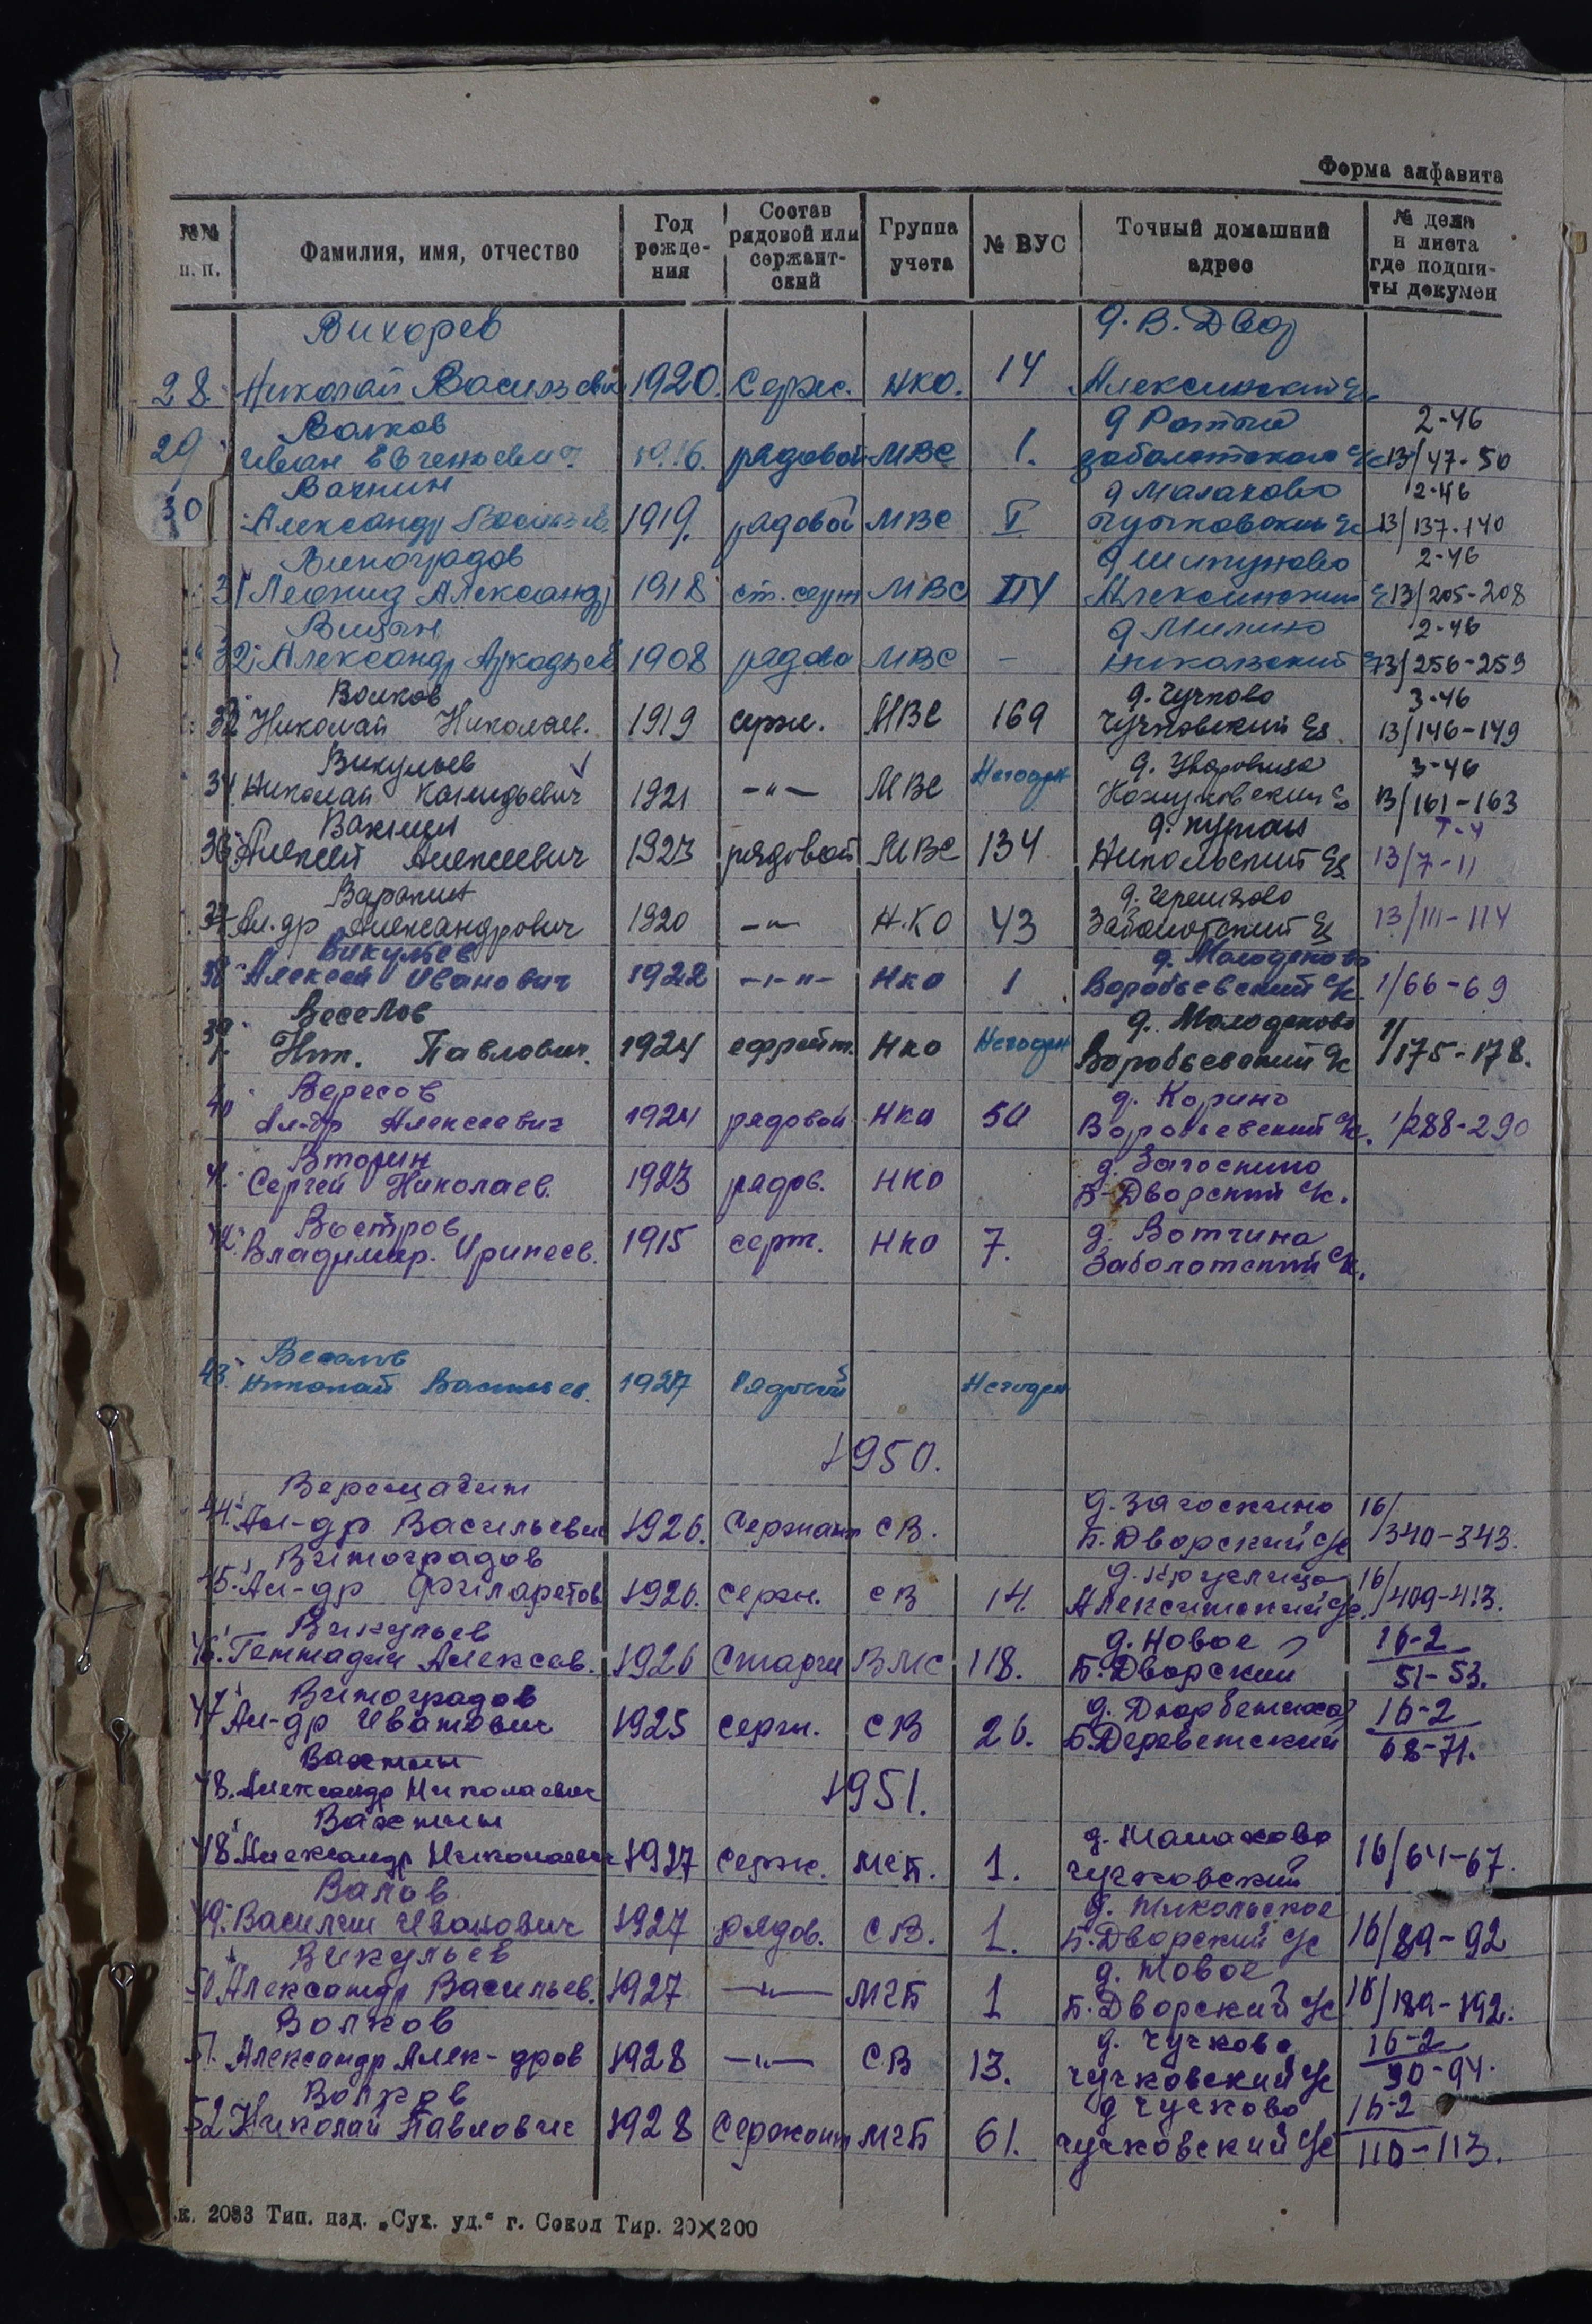 Форма алфавита
№№ п. п.
Фамилия, имя, отчество
Год рожде- ния
Состав рядовой или сержант- ский
Группа учета
№ ВУС
Точный домашний адрес
№ дела и листа где подши- ты докумен
Вихорев д. В. Двор
28. Николай Васильевич 1920. Серж. НКО. 14 Алексинский
Волков 2-46
29 Иван Евгеньевич 1916. рядовой МВС 1. Заболотского с/с 13/47-50
Вахнин д Малахово 2-46
30 Александр Васильев. 1919. рядовой МВС I Чучковский с/с 13/137-140
Виноградов д Шипуново 2-46
31 Леонид Александр 1918 ст. МВС Алексинский 13/205-208
д Милино 2-46
32. Александр Аркадьев 1908 рядово МВС - Никольский 13/256-259
Волков д. Чучково 3-46
Николай Николаев. 1919 серж. МВС 169 Чучковский с/с. 13/146-149
Викульев 3-46
34. Николай 1921 -"- МВС Негоден 13/161-163
д.
Алексей Алексеевич 1923 рядовой МВС 134 Никольский с/с 13/7-11
д.
Ал.др Александрович 1920 -"- Н.КО 43 Заболотский с/с 13/111-114
Викульев д. Молоденово
38 Алексей Иванович 1922 -"- НКО 1 Воробьевский с/к 1/66-69
Веселов д. Молоденово
39 Ник. Павлович. 1924 ефрейт. НКО Негоден Воробьевский с/к 1/175-178.
Вересов д. Корино
40 Ал-др Алексеевич 1924 рядовой НКО 50 Воробьевский с/к. 1/288-290
Вторин д. Загоскино
41. Сергей Николаев. 1923 рядов. НКО Б-Дворский с/к.
Востров д. Вотчина
42. Владимир. Иринеев. 1915 серж. НКО 7. Заболотский с/к.
Веселов
43. Николай Васильев. 1927 Рядовой Негоден
1950.
Верещагин д. Загоскино 16/
44. Ал-др Васильевич 1926. Сержант СВ. Б. Дворский с/с 340-343.
Виноградов д. 16/
45. Ал-др Филаретов 1926. Серж. СВ 14. Алексинский с/с. 409-413.
Викульев д. Новое 16-2
46. Геннадий Алексеев. 1926 Старш ВМС 118. Б. Дворский 51-53.
Виноградов д. 16-2
47 Ал-др Иванович 1925 Серж. СВ 26. 68-71.
Вахнин
48. Александр Николаевич 1951.
Вахнин д. Малахово
48. Александр Николаевич 1927 Серж. 1. Чучковский 16/64-67.
Валов д. Никольское
49. Василий Иванович 1927 рядов. СВ. 1. Б. Дворский с/с 16/89-92
Викульев д. Новое
50. Александр Васильев. 1927 -"- МГБ 1 Б. Дворский с/с 16/189-192.
Волков д. Чучково 16-2
51. Александр Алек-дров 1928 -"- СВ 13. Чучковский с/с 90-94.
Волков д Чучково 16-2
52 Николай Павлович 1928 Сержант МГБ 61. Чучковский с/с 110-113.
к. 2033 Тип. изд. „Сух. уд.“ г. Сокол Тир. 20×200